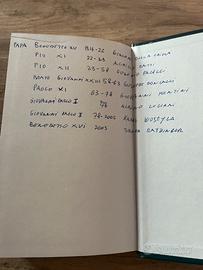 PAPA BENEDETTO XV 1914-22 GIACOMO DELLA CHIESA
PIO XI 22-39 ACHILLE RATTI
PIO XII 39-58 EUGENIO PACELLI
BEATO GIOVANNI XXIII 58-63 GIUSEPPE RONCALLI
PAOLO VI 63-78 GIOVANNI MONTINI
GIOVANNI PAOLO I 78 ALBINO LUCIANI
GIOVANNI PAOLO II 78-2005 KAROL WOJTYLA
BENEDETTO XVI 2005 RATZINGER